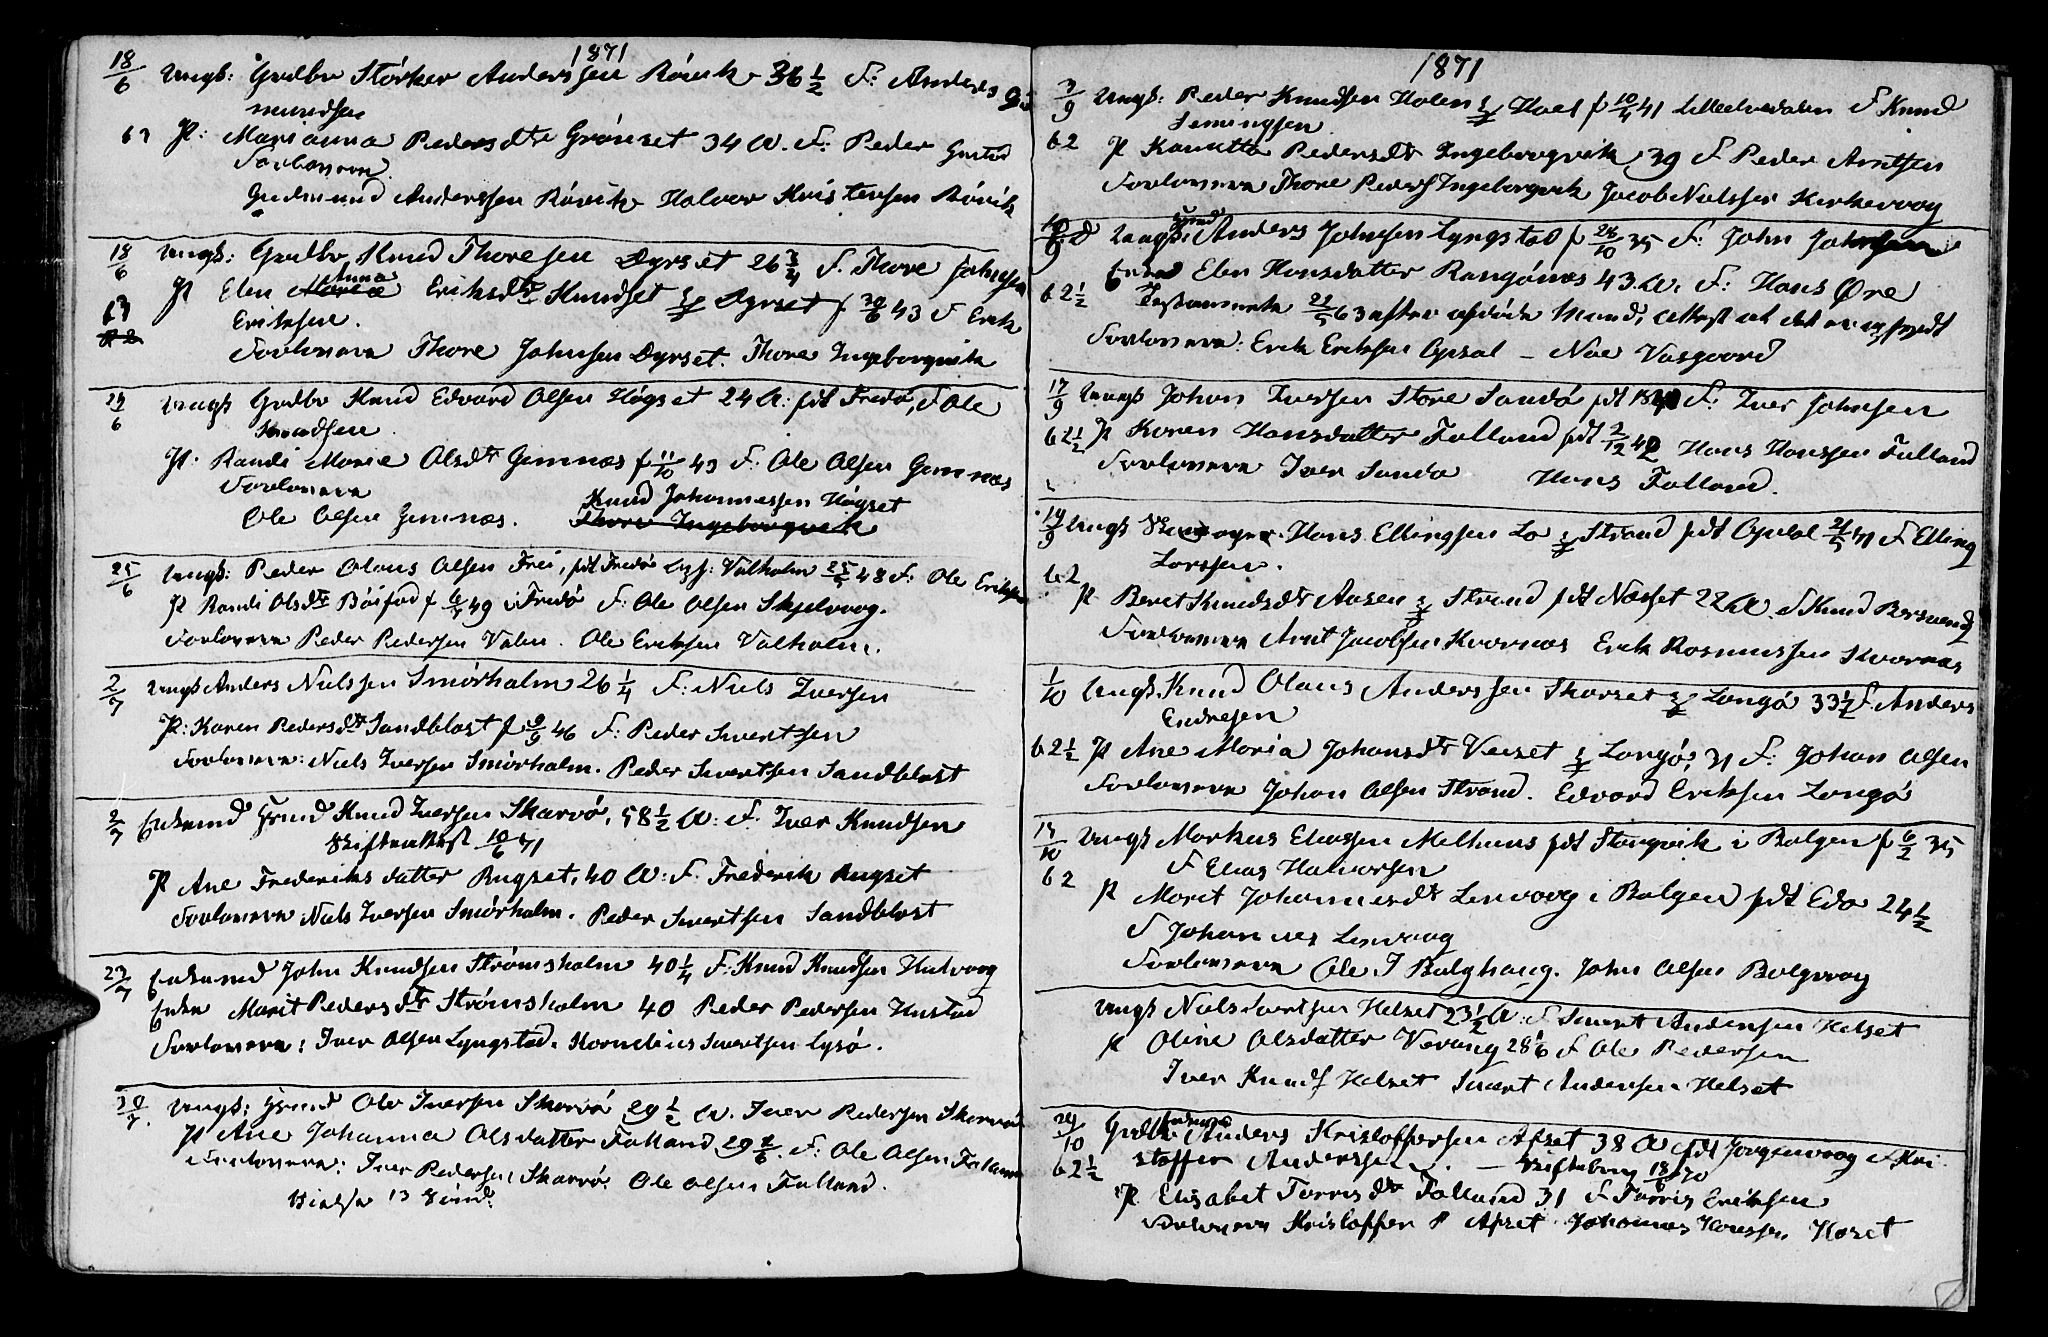 1871
18/6 Ungk: Grdbr Störker Anderssen Rövik 36 1/2 F: Anders Gud
mundsen
63 P: Marianna Pedersdtr Grönset 34 A. F: Peder
Forlovere
Gudmund Anderssen Rövik Halvor Kristensen Rövik
18/6 Ungk: Grdbr. Knud Thoresen Dyrset 26 3/4 F. Thore Johnsen
P Elen Anna Eriksdtr Knudset Dyrset f 30/6 43 F Erik
63 Eriksen.
Forlovere Thore Johnsen Dyrset. Thore Ingeborgvik
24/6 Ungk Grdbr Knud Edvard Olsen Högset 24 A: fdt Fredö, F Ole
Knudsen
P: Randi Marie Olsdtr Gimnæs f 11/10 43 F: Ole Olsen Gimnæs
Forlovere Knud Johannessen Högset
Ole Olsen Gimnæs. Thore Ingeborgvik
25/6 Ungk: Peder Olaus Olsen Frei, fdt Fredö Valholm 25/5 48 F: Ole Eriksen
P Randi Olsdtr Böifod f 6/7 49 i Fredö F: Ole Olsen Skjelvaag.
Forlovere Peder Pedersen Valen. Ole Eriksen Valholm.
2/7 Ungk Anders Nielssen Smörholm 26 1/4 F: Niels Iversen
P: Karen Pedersdtr Sandblost f 9/9 46 F: Peder Sivertsen
Forlovere: Niels Iversen Smörholm. Peder Sivertsen Sandblost
2/7 Enkemd Grmd Knud Iversen Skarvö, 58 1/2 A: F. Iver Knudsen
Skifteattest 10/6 71
P Ane Frederiksdatter Rugset, 40 A: F: Frederik Rugset
Forlovere Niels Iversen Smörholm. Peder Sivertsen Sandblost
23/7 Enkemd John Knudsen Strömsholm 40 1/4 F: Knud Knudsen Hulvaag
Enke Marit Pedersdtr Strömsholm 40 Peder Pedersen Hustad
Forlovere: Iver Olsen Lyngstad. Kornelius Sivertsen Lysö.
30/7. Ungk: Grmd Ole Iversen Skarvö 29 1/2 A. Iver Pedersen Skarvö
P Ane Johanna Olsdatter Falland 29 F: Ole Olsen Falland
Forlovere: Iver Pedersen Skarvö. Ole Olsen Falland.
13 Sönd.
1871
3/9 Ungk: Peder Knudsen Holen Hoel f 10/4 41 Lilledalen F Knud
Semingsen
62 P Karutta Pedersdtr Ingeborgvik 39 F Peder Arntsen
Forlovere Thore Peders Ingeborgvik Jacob Nielssen Kirkevaag
10/9 Ungk: Grmd Anders Johnsen Lyngstad f 26/10 35 F: John Johnsen
Enke Elen Hansdatter Rangönæs 43 A. F: Hans Öre
62 1/2 22/5 63 efter afdöde Mand, attest at det er opfyldt
Forlovere: Erik Eriksen Opsal - Noe Vasgaard
17/9 Ungk Johan Iversen Store Sandö fdt 18 F: Iver Johnsen
62 1/2 P Karen Hansdatter Falland fdt 2/12 42 Hans Hanssen Falland
Forlovere Iver Sandö Hans Falland.
19/9 Ungk Skomager. Hans Ellingsen Lo Strand fdt Opdal 21/5 41 F Elling
Larssen.
62 P Beret Knudsdtr Aasen Strand fdt Næsset 22 A. F Knud
Forlovere Arnt Jacobsen Kvornæs Erik Rasmussen Kvornæs
1/10 Ungk Knud Olaus Anderssen Skarset Langö 33 1/2 F. Anders
Endresen
62 1/2 P Ane Maria Johansdtr Veiset Langö, 31 F: Johan Olsen
Forlovere Johan Olsen Strand. Edvard Eriksen Langö
15/10 Ungk Markus Eliassen Melhuus fdt Stangvik i Bolgen f 6/2 35
F Elias Halvorsen
62 P Marit Johannesdtr Lenvaag i Bolgen fdt Edö 24 1/2
F Johannes Lenvaag
Forlovere Ole J Bolghaug. John Olsen Bolgvaag
Ungk Niels Sivertsen Helset 23 1/2 A: F Sivert Andersen Helset
P Oline Olsdatter Vevang 28 1/6 F Ole Pedersen
Iver Knuds Helset Sivert Andersen Helset
29/10 Grdbr Enkemd Anders Kristoffersen Afset 38 A fdt Jørgenvaag F Kri
62 1/2 stoffer Anderssen. - Skiftebrev 18/6 70
P Elisabet Torrisdtr Falland 31 F Torris Eriksen
Forlovere Kristoffer P Afset Johannes Hanssen Hoset